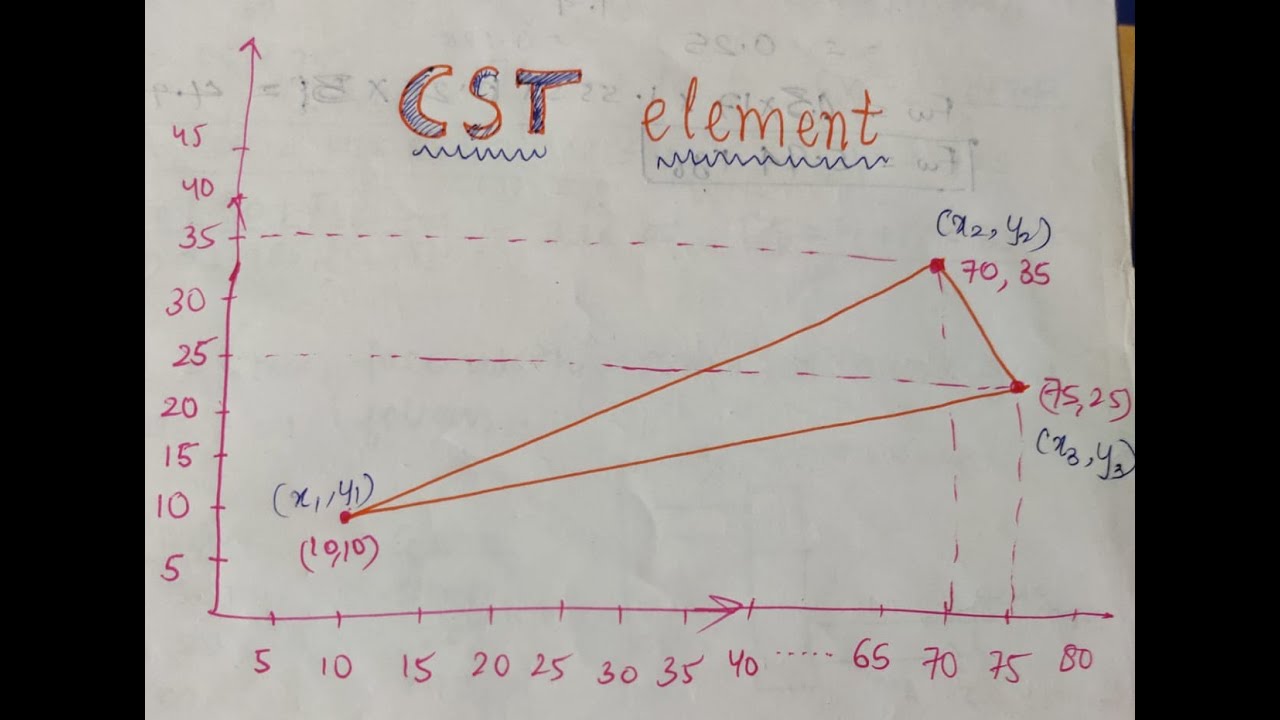 CST element
45
40
35
30
25
20
15
10
5
(x₂, y₂)
70, 35
(75, 25)
(x₃, y₃)
(x₁, y₁)
(10, 10)
5 10 15 20 25 30 35 40 ..... 65 70 75 80